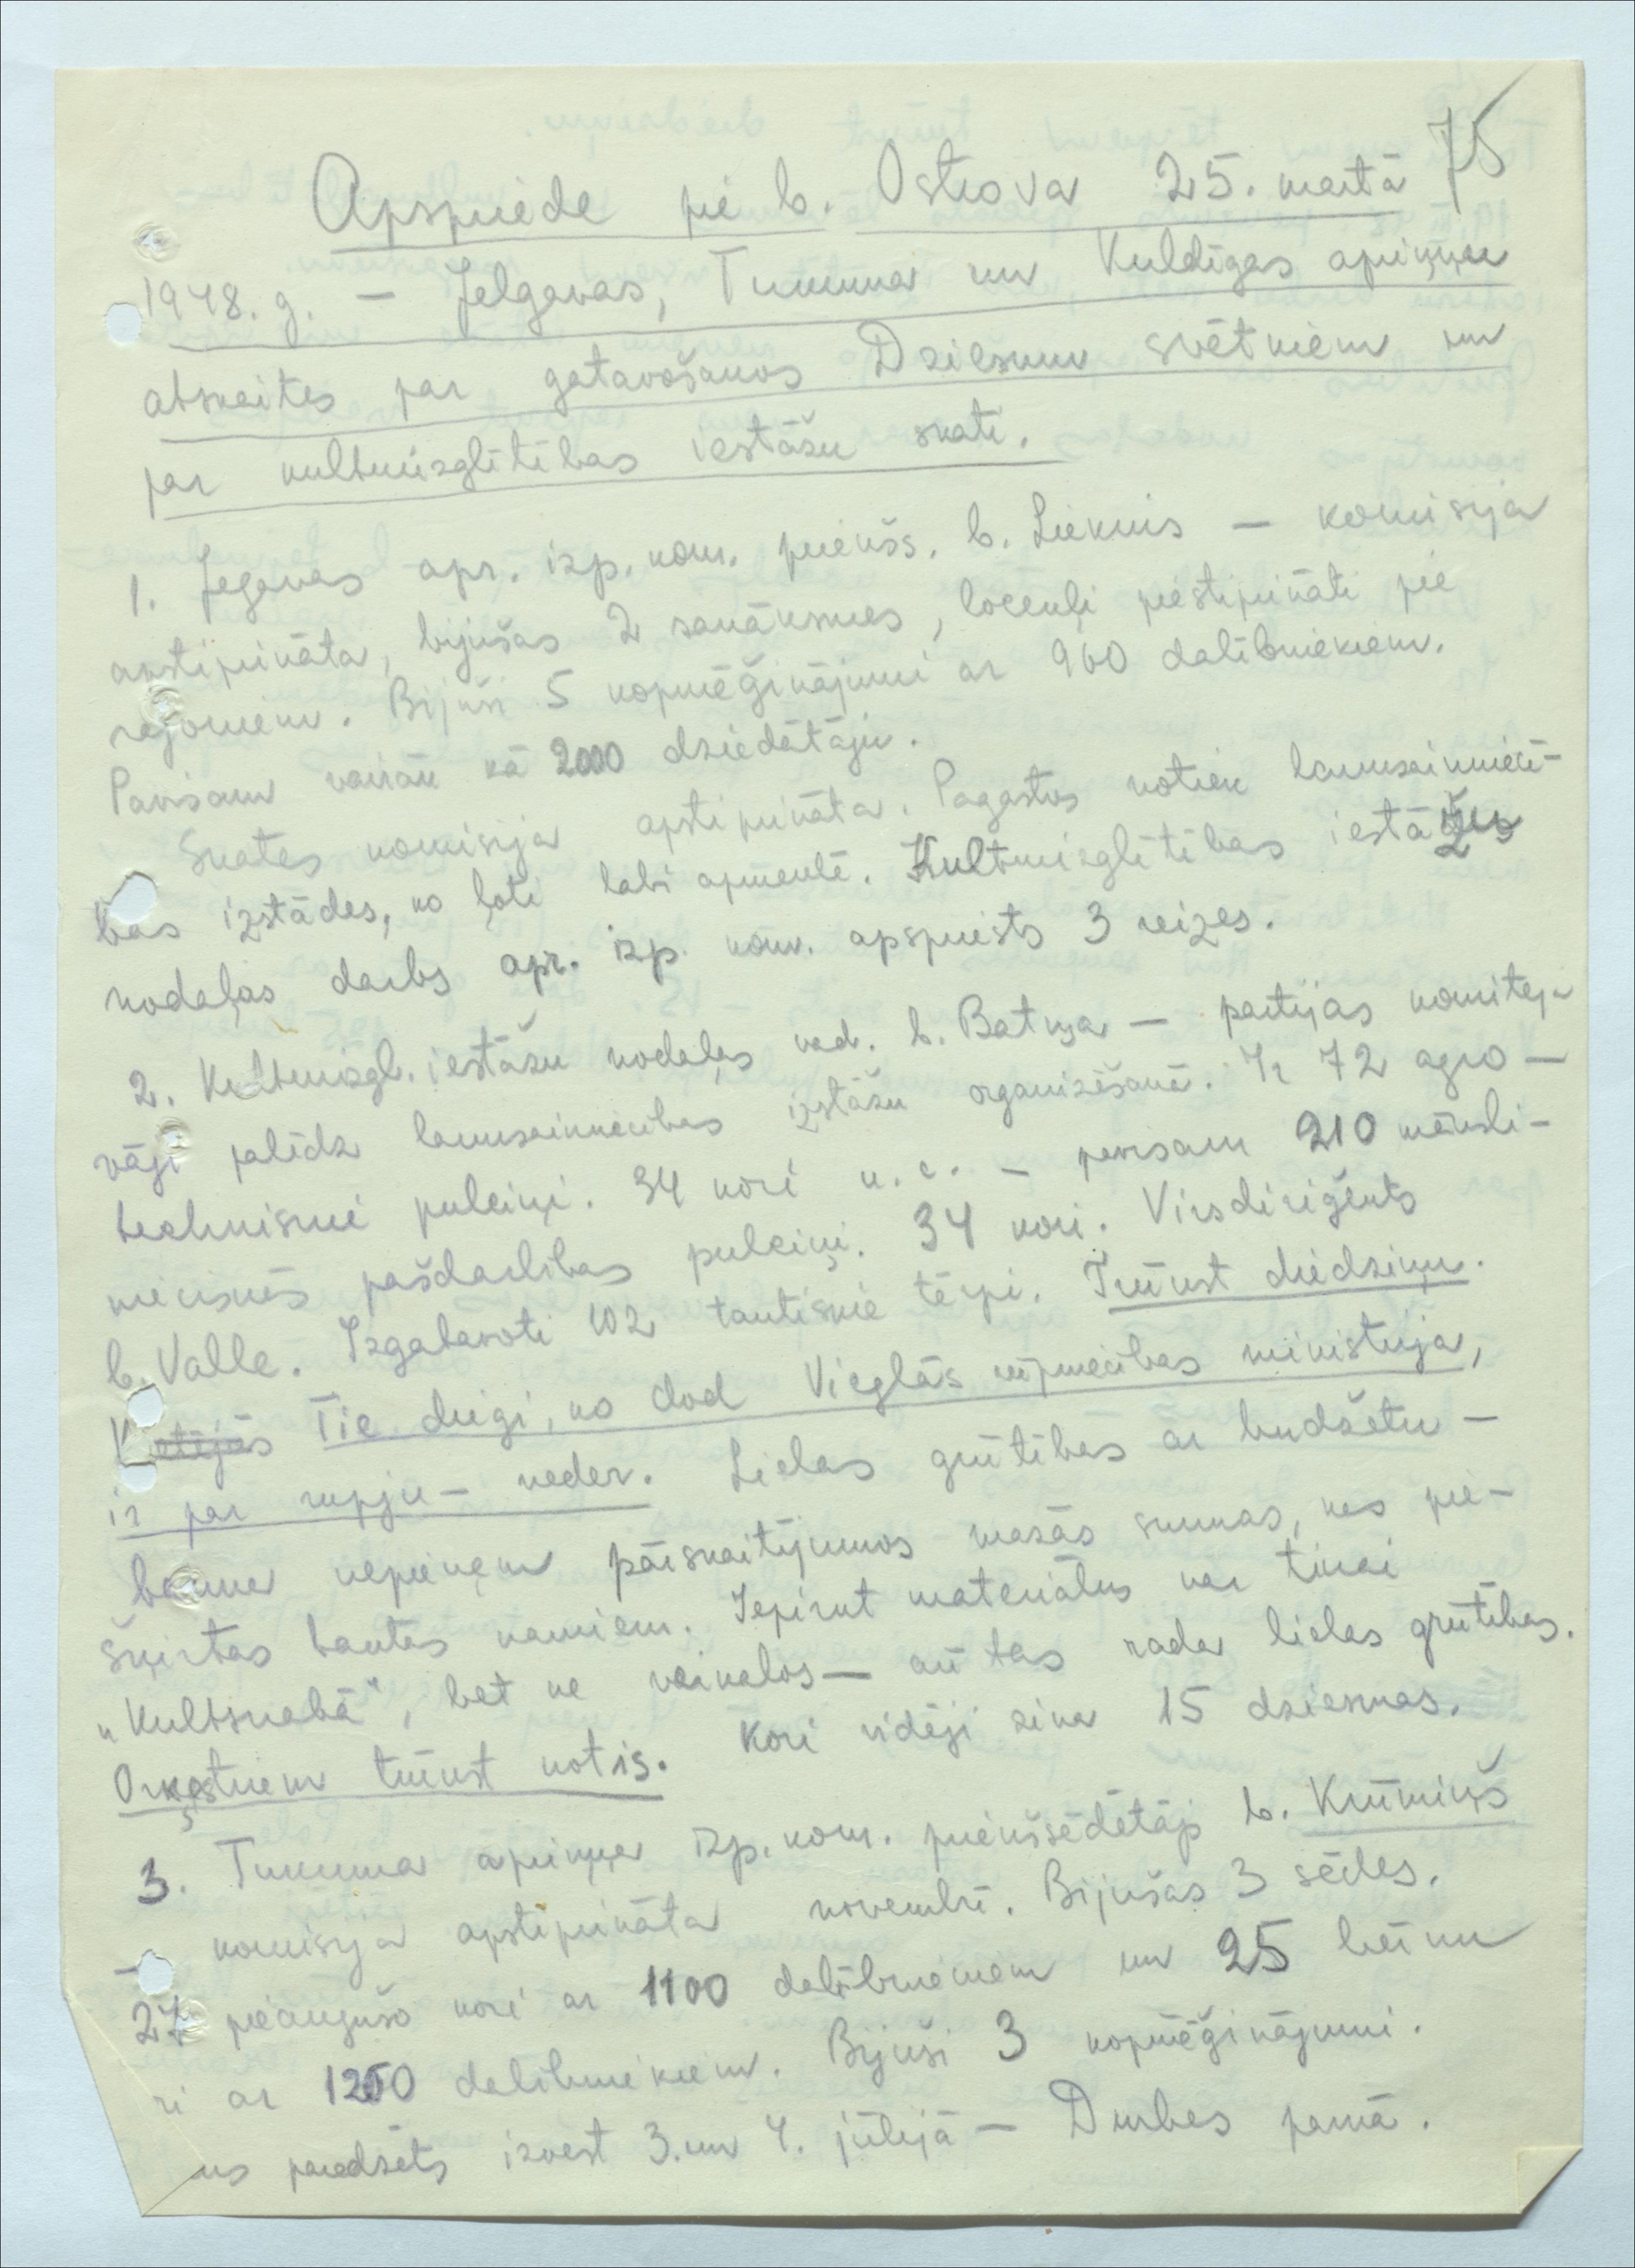 75
Apspriede pie b. Ostrova 25. martā
1948. g. – Jelgavas, Tukuma un Kuldīgas apriņķu
atskaites par gatavošanos Dziesmu svētkiem un
par kultūrizglītības iestāžu skati.
1. Jegavas apr. izp. kom. priekšs. b. Lieknis – komisija
apstiprināta, bijušas 2 sanāksmes, locekļi piestiprināti pie
rajoniem. Bijuši 5 kopmēģinājumi ar 960 dalībniekiem.
Pavisam vairāk kā 2000 dziedātāju.
Skates komisija apstiprināta. Pagastos notiek lauksaimniecī-
bas izstādes, ko ļoti labi apmeklē. Kultūrizglītības iestāžu
nodaļas darbs apr. izp. kom. apspriests 3 reizes.
2. Kultūrizgl. iestāžu nodaļas vad. b. Batņa – partijas komiteja
vāji palīdz lauksaimniecības izstāžu organizēšanā. Ir 72 agro-
techniskie pulciņi. 34 kori u.c. – pavisam 210 māksli-
nieciskās pašdarbības pulciņi. 34 kori. Virsdiriģents
b. Valle. Izgatavoti 102 tautiskie tērpi. Trūkst dziedziņu.
Tie diegi, ko dod Vieglās rūpniecības ministrija,
ir par rupju – neder. Lielas grūtības ar budžetu –
banka nepieņem pārskaitījumos mazās summas, kas pie-
šķirtas tautas namiem. Iepirkt materiālus var tikai
"Kultsnabā", bet ne veikalos – arī tas rada lielas grūtības.
Orķestriem trūkst notis. Kori vidēji zina 15 dziesmas.
3. Tukuma apriņķa izp. kom. priekšsēdētājs b. Krūmiņš
– komisija apstiprināta novembrī. Bijušas 3 sēdes.
27 pieaugušo kori ar 1100 dalībniekiem un 25 bērnu
ri ar 1250 dalībniekiem. Bijuši 3 kopmēģinājumi.
us paredzēts izvest 3. un 4. jūlijā – Durbes parkā.